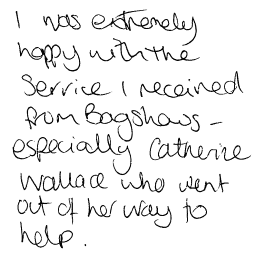 I was extremely
happy with the
Service I received
from Bagshaws -
especially Catherine
Wallace who went
out of her way to
help.